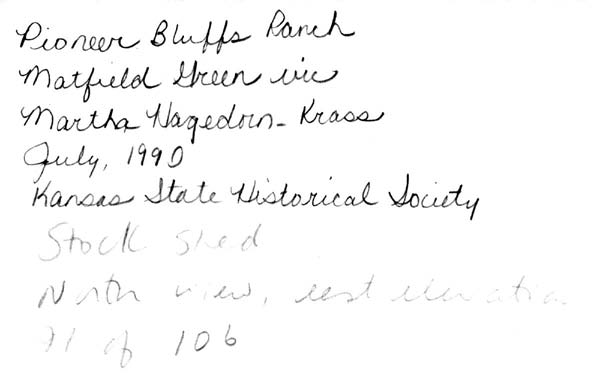 Pioneer Bluffs Ranch
Matfield Green vic
Martha Hagedorn-Krass
July, 1990
Kansas State Historical Society
Stock shed
North view, east elevation
71 of 106